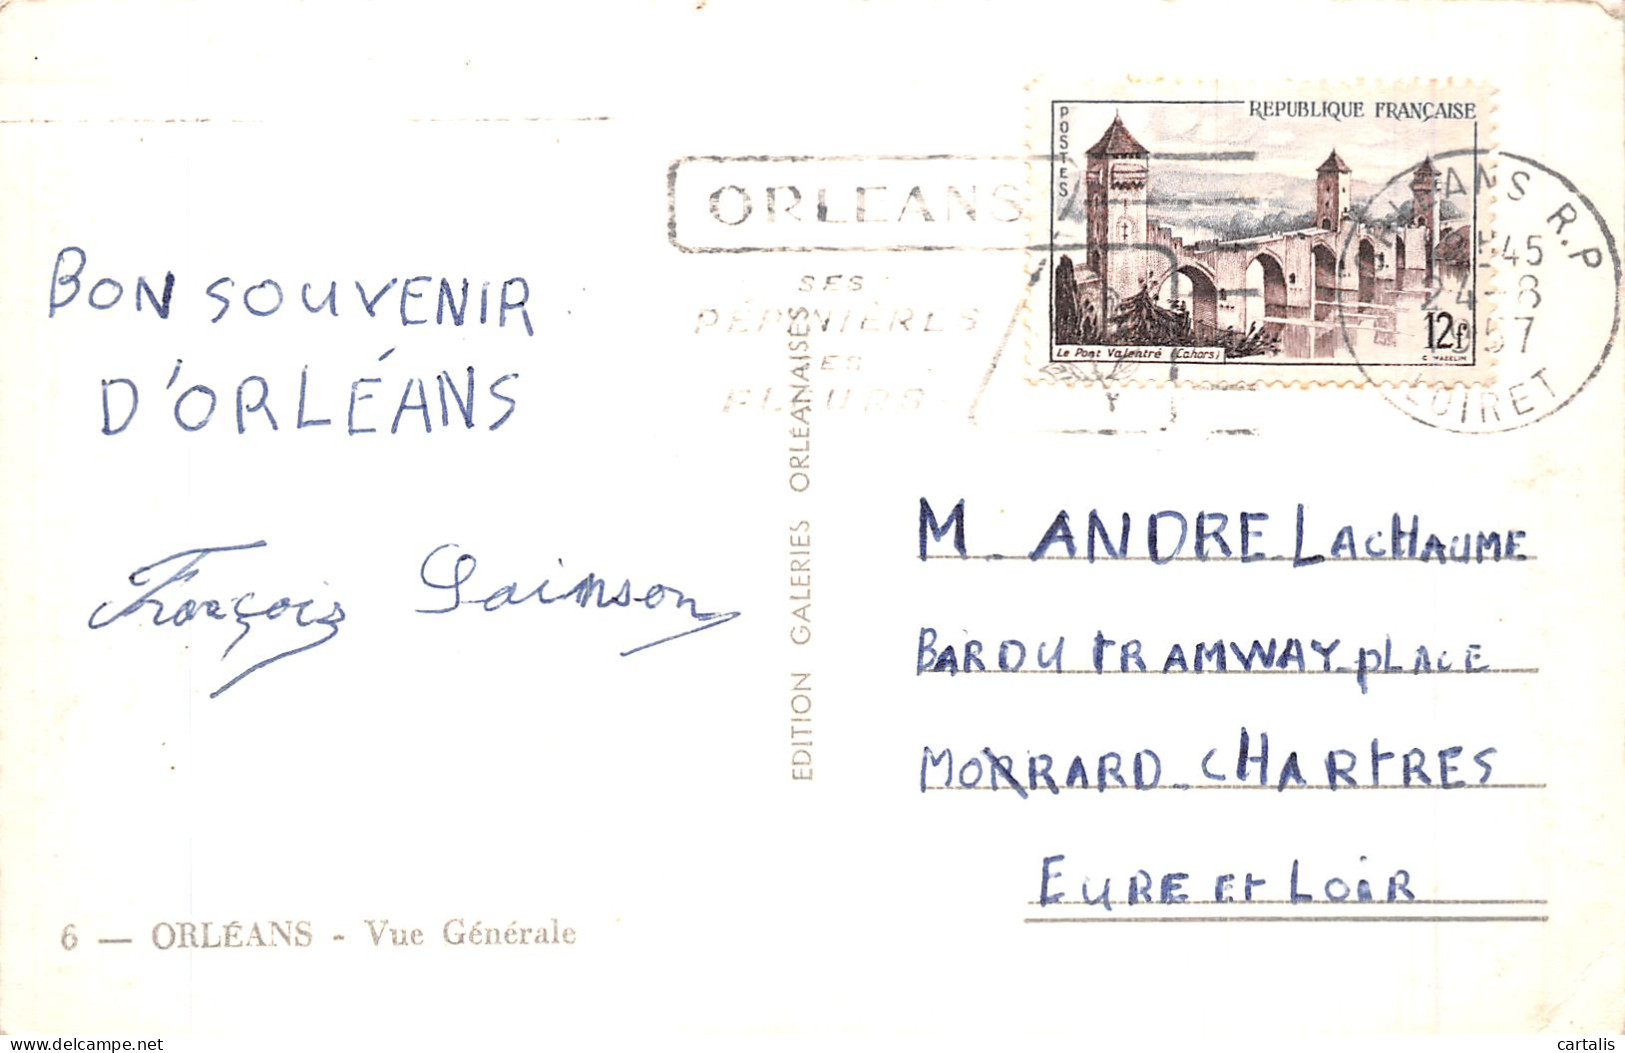 BON SOUVENIR
D'ORLÉANS
François Sainson
6 — ORLÉANS - Vue Générale
EDITION GALERIES ORLÉANAISES
ORLEANS
SES
PÉPINIÈRES
SES
FLEURS
POSTES
REPUBLIQUE FRANÇAISE
Le Pont Valentré (Cahors)
12f
C. MAZELIN
ORLEANS R.P
45
24-8
1957
LOIRET
M. ANDRE LACHAUME
BAR DU TRAMWAY PLACE
MORRARD CHARTRES
EURE ET LOIR
delcampe.net
cartalis